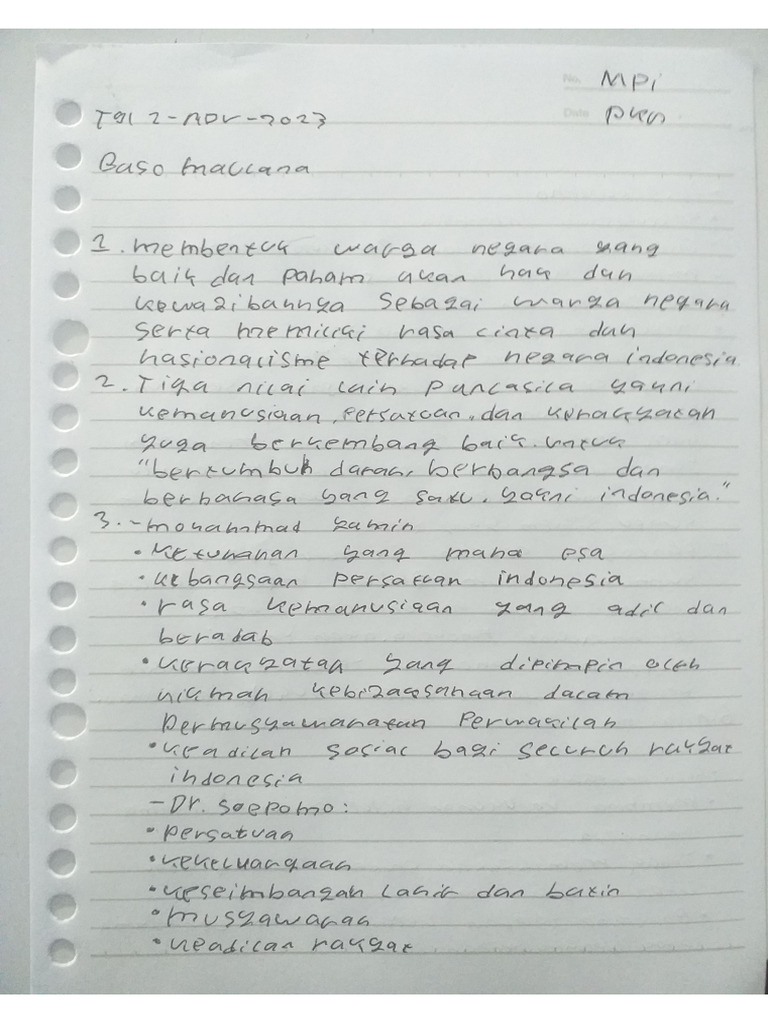 No. MPi
Tgl 2-NOV-2023
Date pkn
Baso maccana
1. membentuk warga negara yang
baik dan paham akan hak dan
kewajibannya sebagai warga negara
serta memiliki rasa cinta dan
nasionalisme terhadap negara indonesia
2. Tiga nilai lain pancasila yakni
kemanusiaan, persatuan, dan kerakyatan
juga berkembang baik. untuk
"bertumbuh darah, berbangsa dan
berbahasa yang satu, yakni indonesia."
3. - mohammad yamin
• Ketuhanan yang maha esa
• kebangsaan persatuan indonesia
• rasa kemanusiaan yang adil dan
beradab
• kerakyatan yang dipimpin oleh
hikmah kebijaksanaan dalam
permusyawaratan perwakilan
• keadilan sosial bagi seluruh rakyat
indonesia
- Dr. soepomo:
• persatuan
• kekeluargaan
• keseimbangan lahir dan batin
• musyawarah
• keadilan rakyat